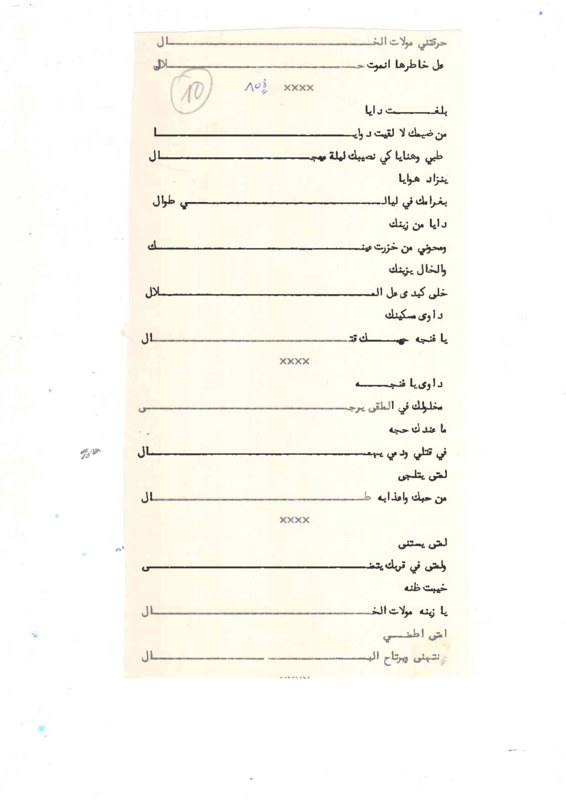 حرقتني مولات الخـــــــال
عل خاطرها انموت حـــــــلال
10 ١٠٥ xxxx
بلغـــــت دايا
من ضيمك لا لقيت دوايـــــــا
طبي وهنايا كي نصيبك ليلة مهجـــــــال
ينزاد هوايا
بغرامك في ليالـــــــي طوال
دايا من زينك
ومحوني من خزرت عينـــــــك
والخال يزينك
خلى كبدى عل المـــــــلال
داوى مسكينك
يا فنجه حبـــــــك قتـــــــال
xxxx
داوى يا فنجـــــــه
مخلولك في الطقى يرجـــــــى
ما عندك حجه
في قتلي ودمي يهمـــــــال
لمتى يتلجى
من حبك واعذابه طـــــــال
xxxx
لمتى يستنى
ولمتى في قربك يتمنـــــــى
خيبت ظنه
يا زينه مولات الخـــــــال
امتى اطمنـــــــي
نتهنى ويرتاح البـــــــال
xxxx